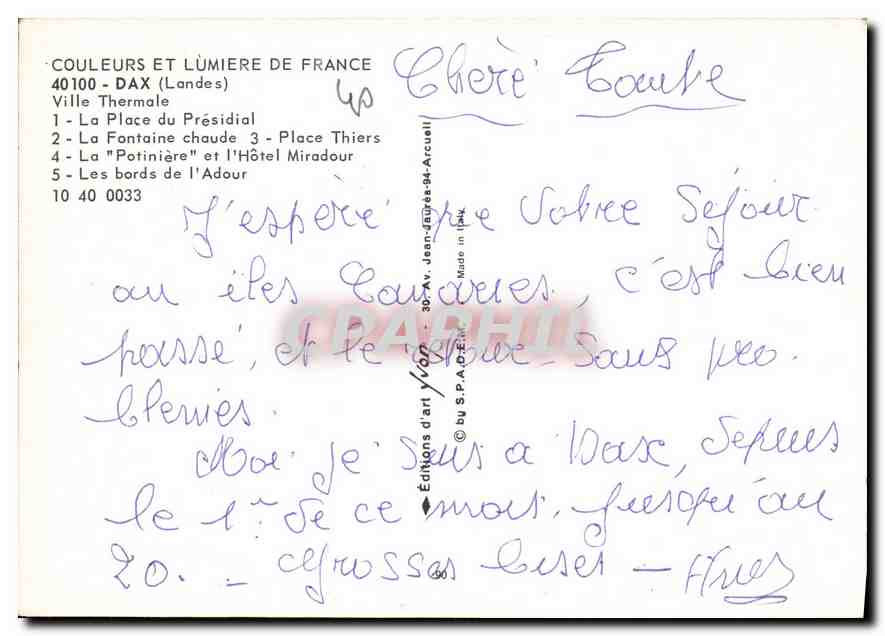 COULEURS ET LUMIERE DE FRANCE
40100 - DAX (Landes)
Ville Thermale
1 - La Place du Présidial
2 - La Fontaine chaude 3 - Place Thiers
4 - La "Potinière" et l'Hôtel Miradour
5 - Les bords de l'Adour
10 40 0033
40
Chère Tante
J'espère que Votre Séjour
au îles Canaries, c'est bien
passé, et le retour sans pro
blemes.
Moi je suis a Dax, depuis
le 1er de ce mois, jusqu'au
20. - Grosses bises -
Éditions d'art Yvon - 30, Av. Jean-Jaurès-94-Arcueil
© by S.P.A.D.E.M. - Made in Italy
90
CPAPHIL